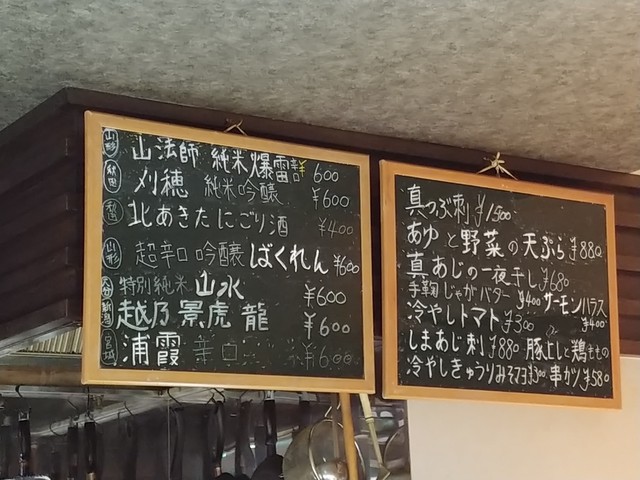 山形 山法師 純米爆雷 辛 600
秋田 刈穂 純米吟醸 ¥600
秋田 北あきたにごり酒 ¥400
山形 超辛口 吟醸 ばくれん ¥600
大分 特別純米 山水 ¥600
新潟 越乃景虎 龍 ¥600
宮城 浦霞 辛口 ¥600
真つぶ刺 ¥1,500
あゆと野菜の天ぷら ¥880
真あじの一夜干し ¥680
手鞠じゃがバター ¥400 サーモンハラス ¥400
冷やしトマト ¥300
しまあじ刺 ¥880 豚上しと鶏ももの
冷やしきゅうりみそマヨ ¥300 串カツ ¥580